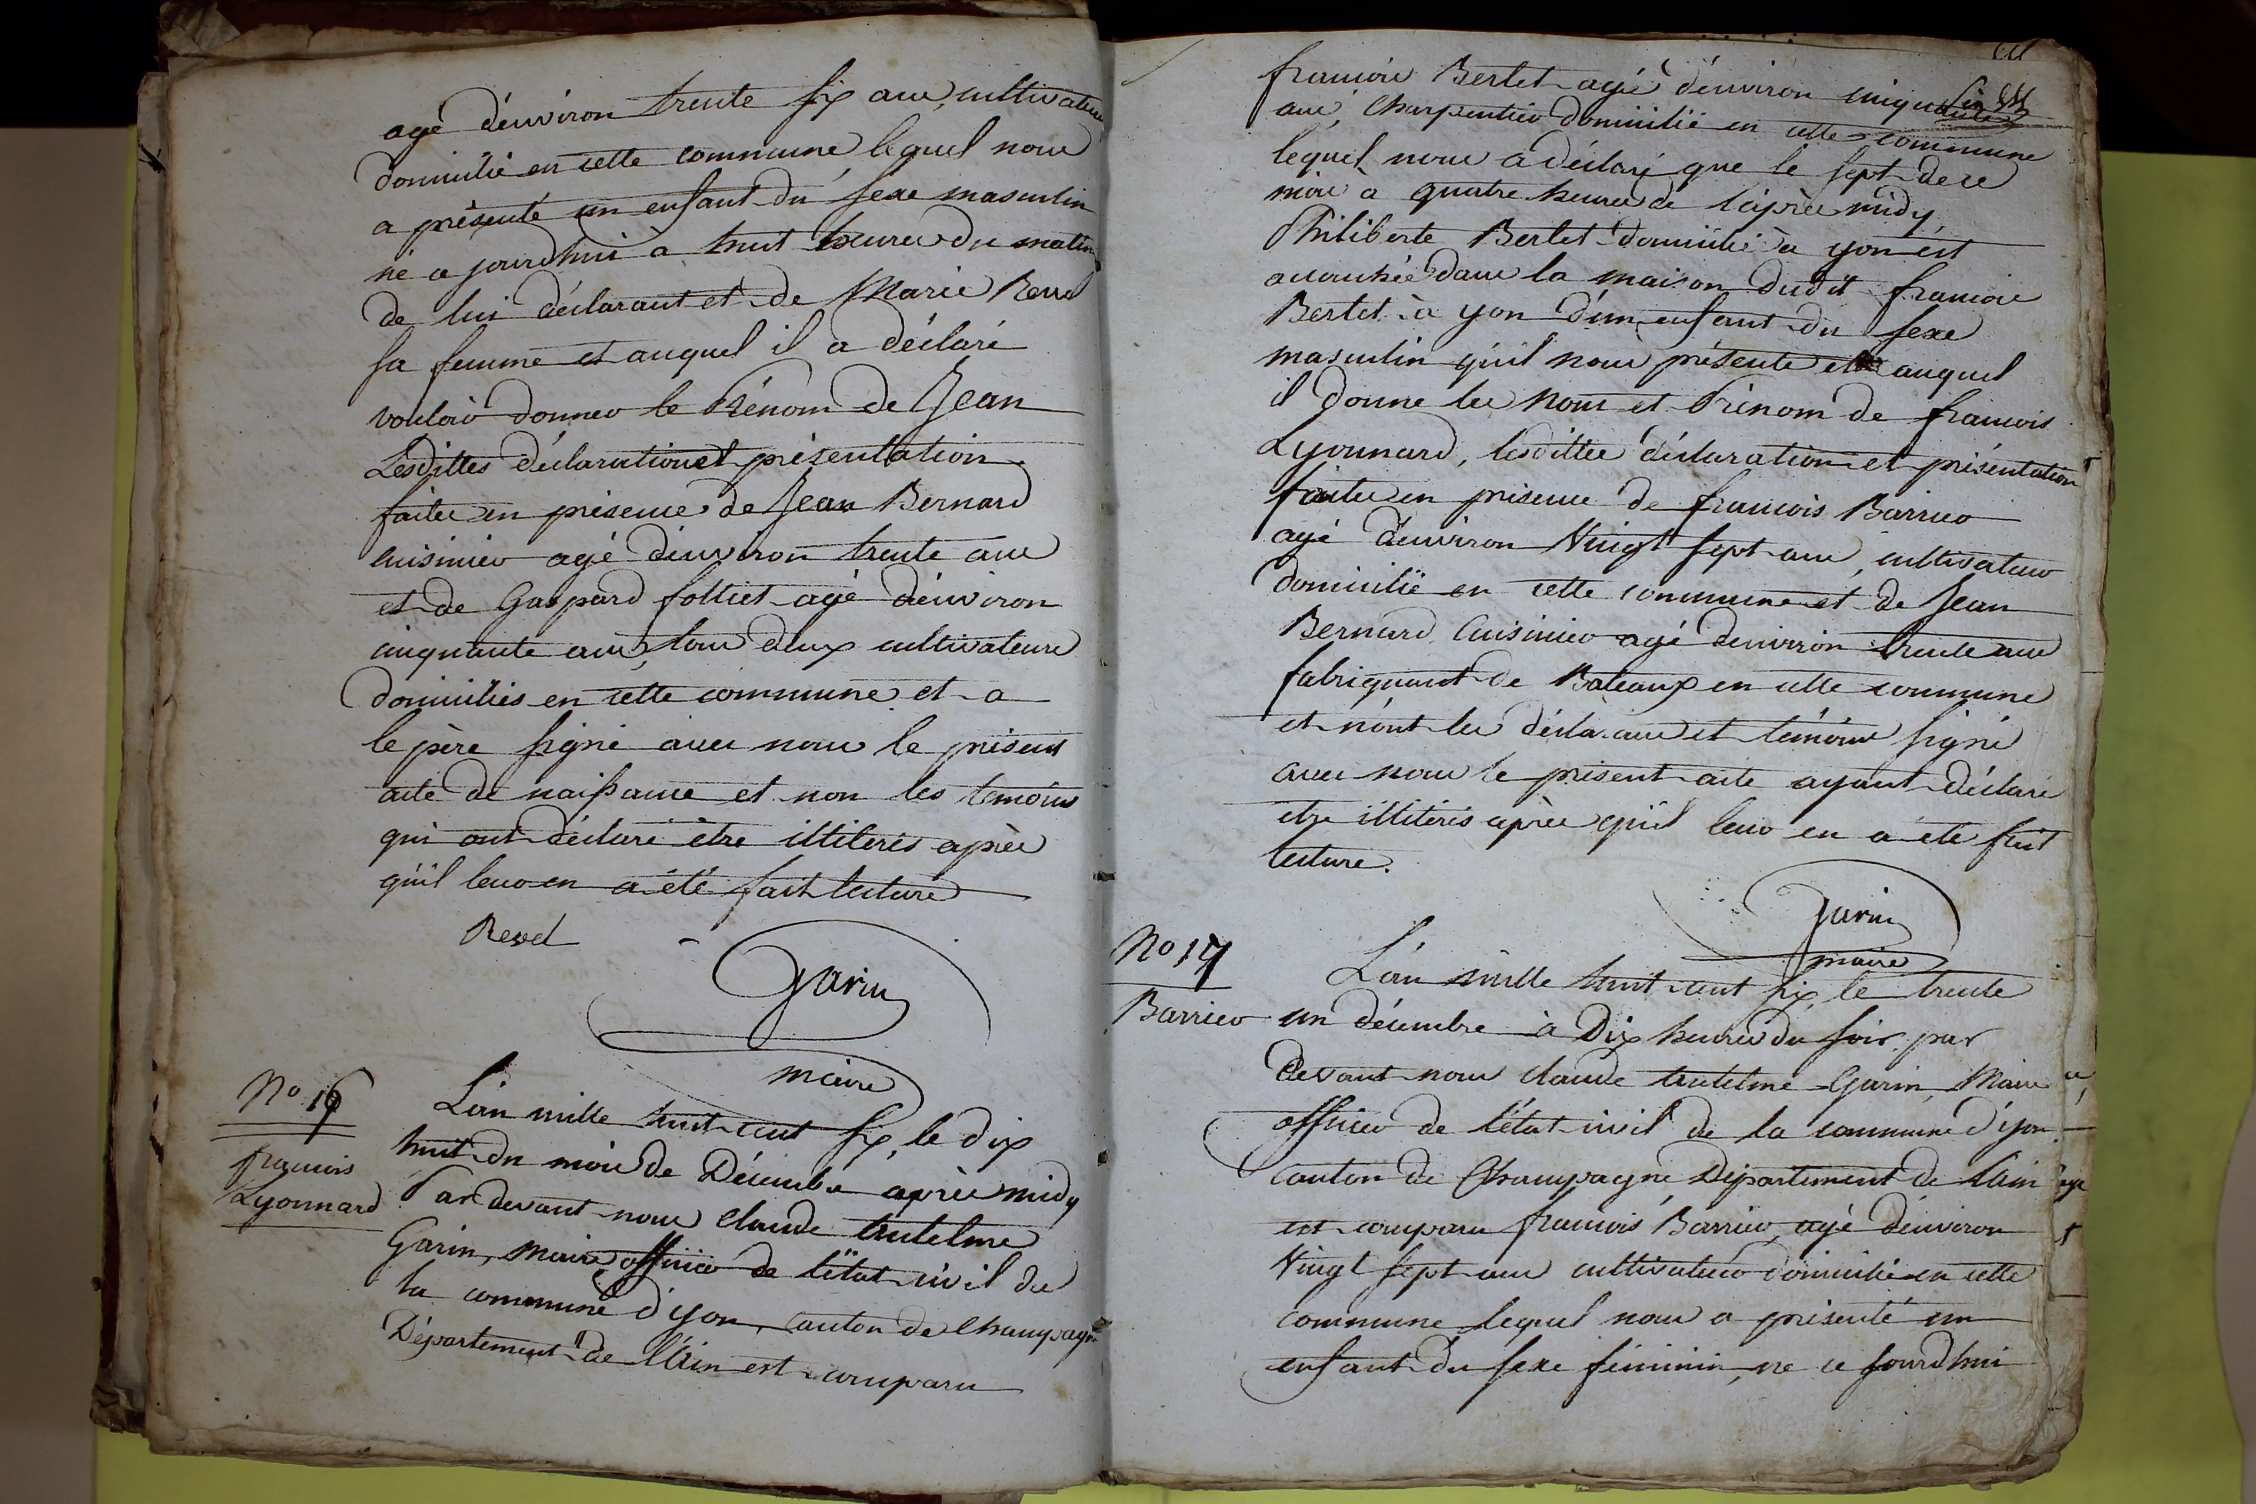 agé d'environ trente six ans, cultivateur
domicilié en cette commune lequel nous
a présenté un enfant du sexe masculin
né ajourd'hui à huit heures du matin
de lui déclarant et de Marie Revel
sa femme et auquel il a déclaré
vouloir donner le Prénom de Jean
Lesdittes déclaration et présentation
faites en présence de Jean Bernard
cuisinier agé d'environ trente ans
et de Gaspard folliet agé d'environ
cinquante ans, tous deux cultivateurs
domiciliés en cette commune et a
le père signé avec nous le présent
acte de naissance et non les temoins
qui ont déclaré être illiterés après
qu'il leur en a été fait lecture
Revel
Garin
maire
No 16
françois
Lyonnard
L'an mille huit cent six, le dix
huit du mois de Décembre après midy
Par devant nous Claude Antelme
Garin, Maire officier de l'état civil de
la commune d'yon, canton de Champagne
Département de l'Ain est comparu
françois Bertet agé d'environ cinquante
ans, Charpentier domicilié en cette commune
lequel nous a déclaré que le sept de ce
mois à quatre heures de l'après midy
Philiberte Bertet domiciliée à yon est
accouchée dans la maison dudit françois
Bertet à yon d'un enfant du sexe
masculin qu'il nous présente et auquel
il donne les nom et Prénom de françois
Lyonnard, lesdittes déclaration et présentation
faites en présence de françois Barrier
agé d'environ Vingt sept ans, cultivateur
domicilié en cette commune et de Jean
Bernard Cuisinier agé d'environ trente ans
fabriquant de Bateaux en cette commune
et n'ont les déclarans et témoins signé
avec nous le présent acte ayant déclaré
être illiterés après qu'il leur en a été fait
lecture.
Garin
maire
No 17
Barrier
L'an mille huit cent six, le trente
un décembre à Dix heures du soir, par
devant nous Claude Antelme Garin, Maire
officier de l'état civil de la commune d'yon
canton de Champagne Département de l'Ain
est comparu françois Barrier, agé d'environ
Vingt sept ans cultivateur domicilié en cette
commune lequel nous a présenté un
enfant du sexe féminin, né ce jourd'hui